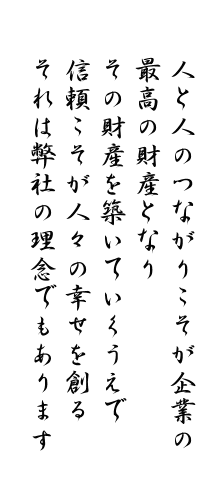 人と人のつながりこそが企業の
最高の財産となり
その財産を築いていくうえで
信頼こそが人々の幸せを創る
それは弊社の理念でもあります